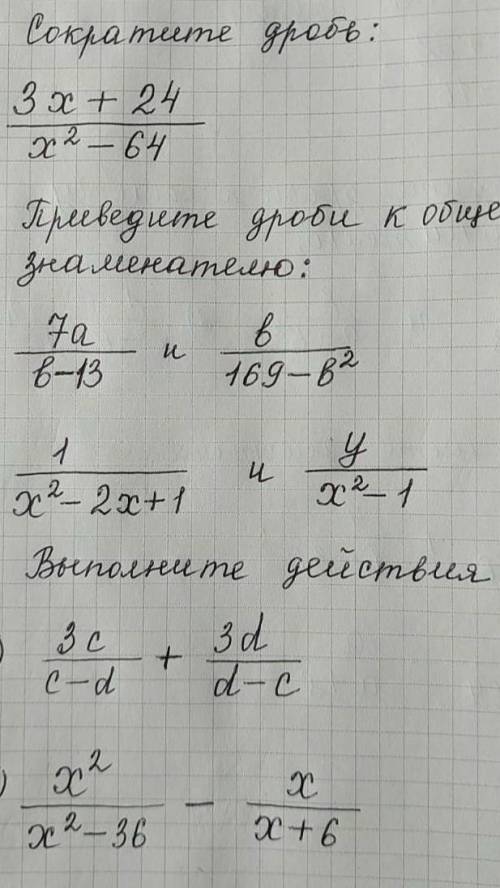 Сократите дробь:
3x + 24
x² − 64
Приведите дроби к обще
знаменателю:
7a/(b−13) и b/(169−b²)
1/(x²−2x+1) и y/(x²−1)
Выполните действия
) 3c/(c−d) + 3d/(d−c)
) x²/(x²−36) − x/(x+6)